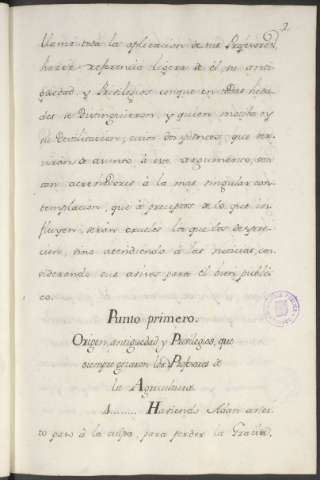 2.
llamó toda la aplicacion de sus Profesores,
hacér referencia ligera de él su anti-
guedad, y Privilegios conque en todas heda-
des se Distinguieron, y quien motiba oy
su Devilitacion; cuios dos puntos, que ser-
viran de asunto à este argumento, son
tan acrendores à la mas singular con-
templacion, que à preceptos de lo que in-
fluyen, seran crueles los que los despre-
cien, sino atendiendo à las noticias, con-
siderando sus asires para el bien publi-
co.
Punto primero.
Origen, antiguedad, y Privilegios, que
siempre gozaron los Profesores de
la Agricultura.
1........ Haviendo Adan avier-
to paso à la culpa, para perder la Gracia,